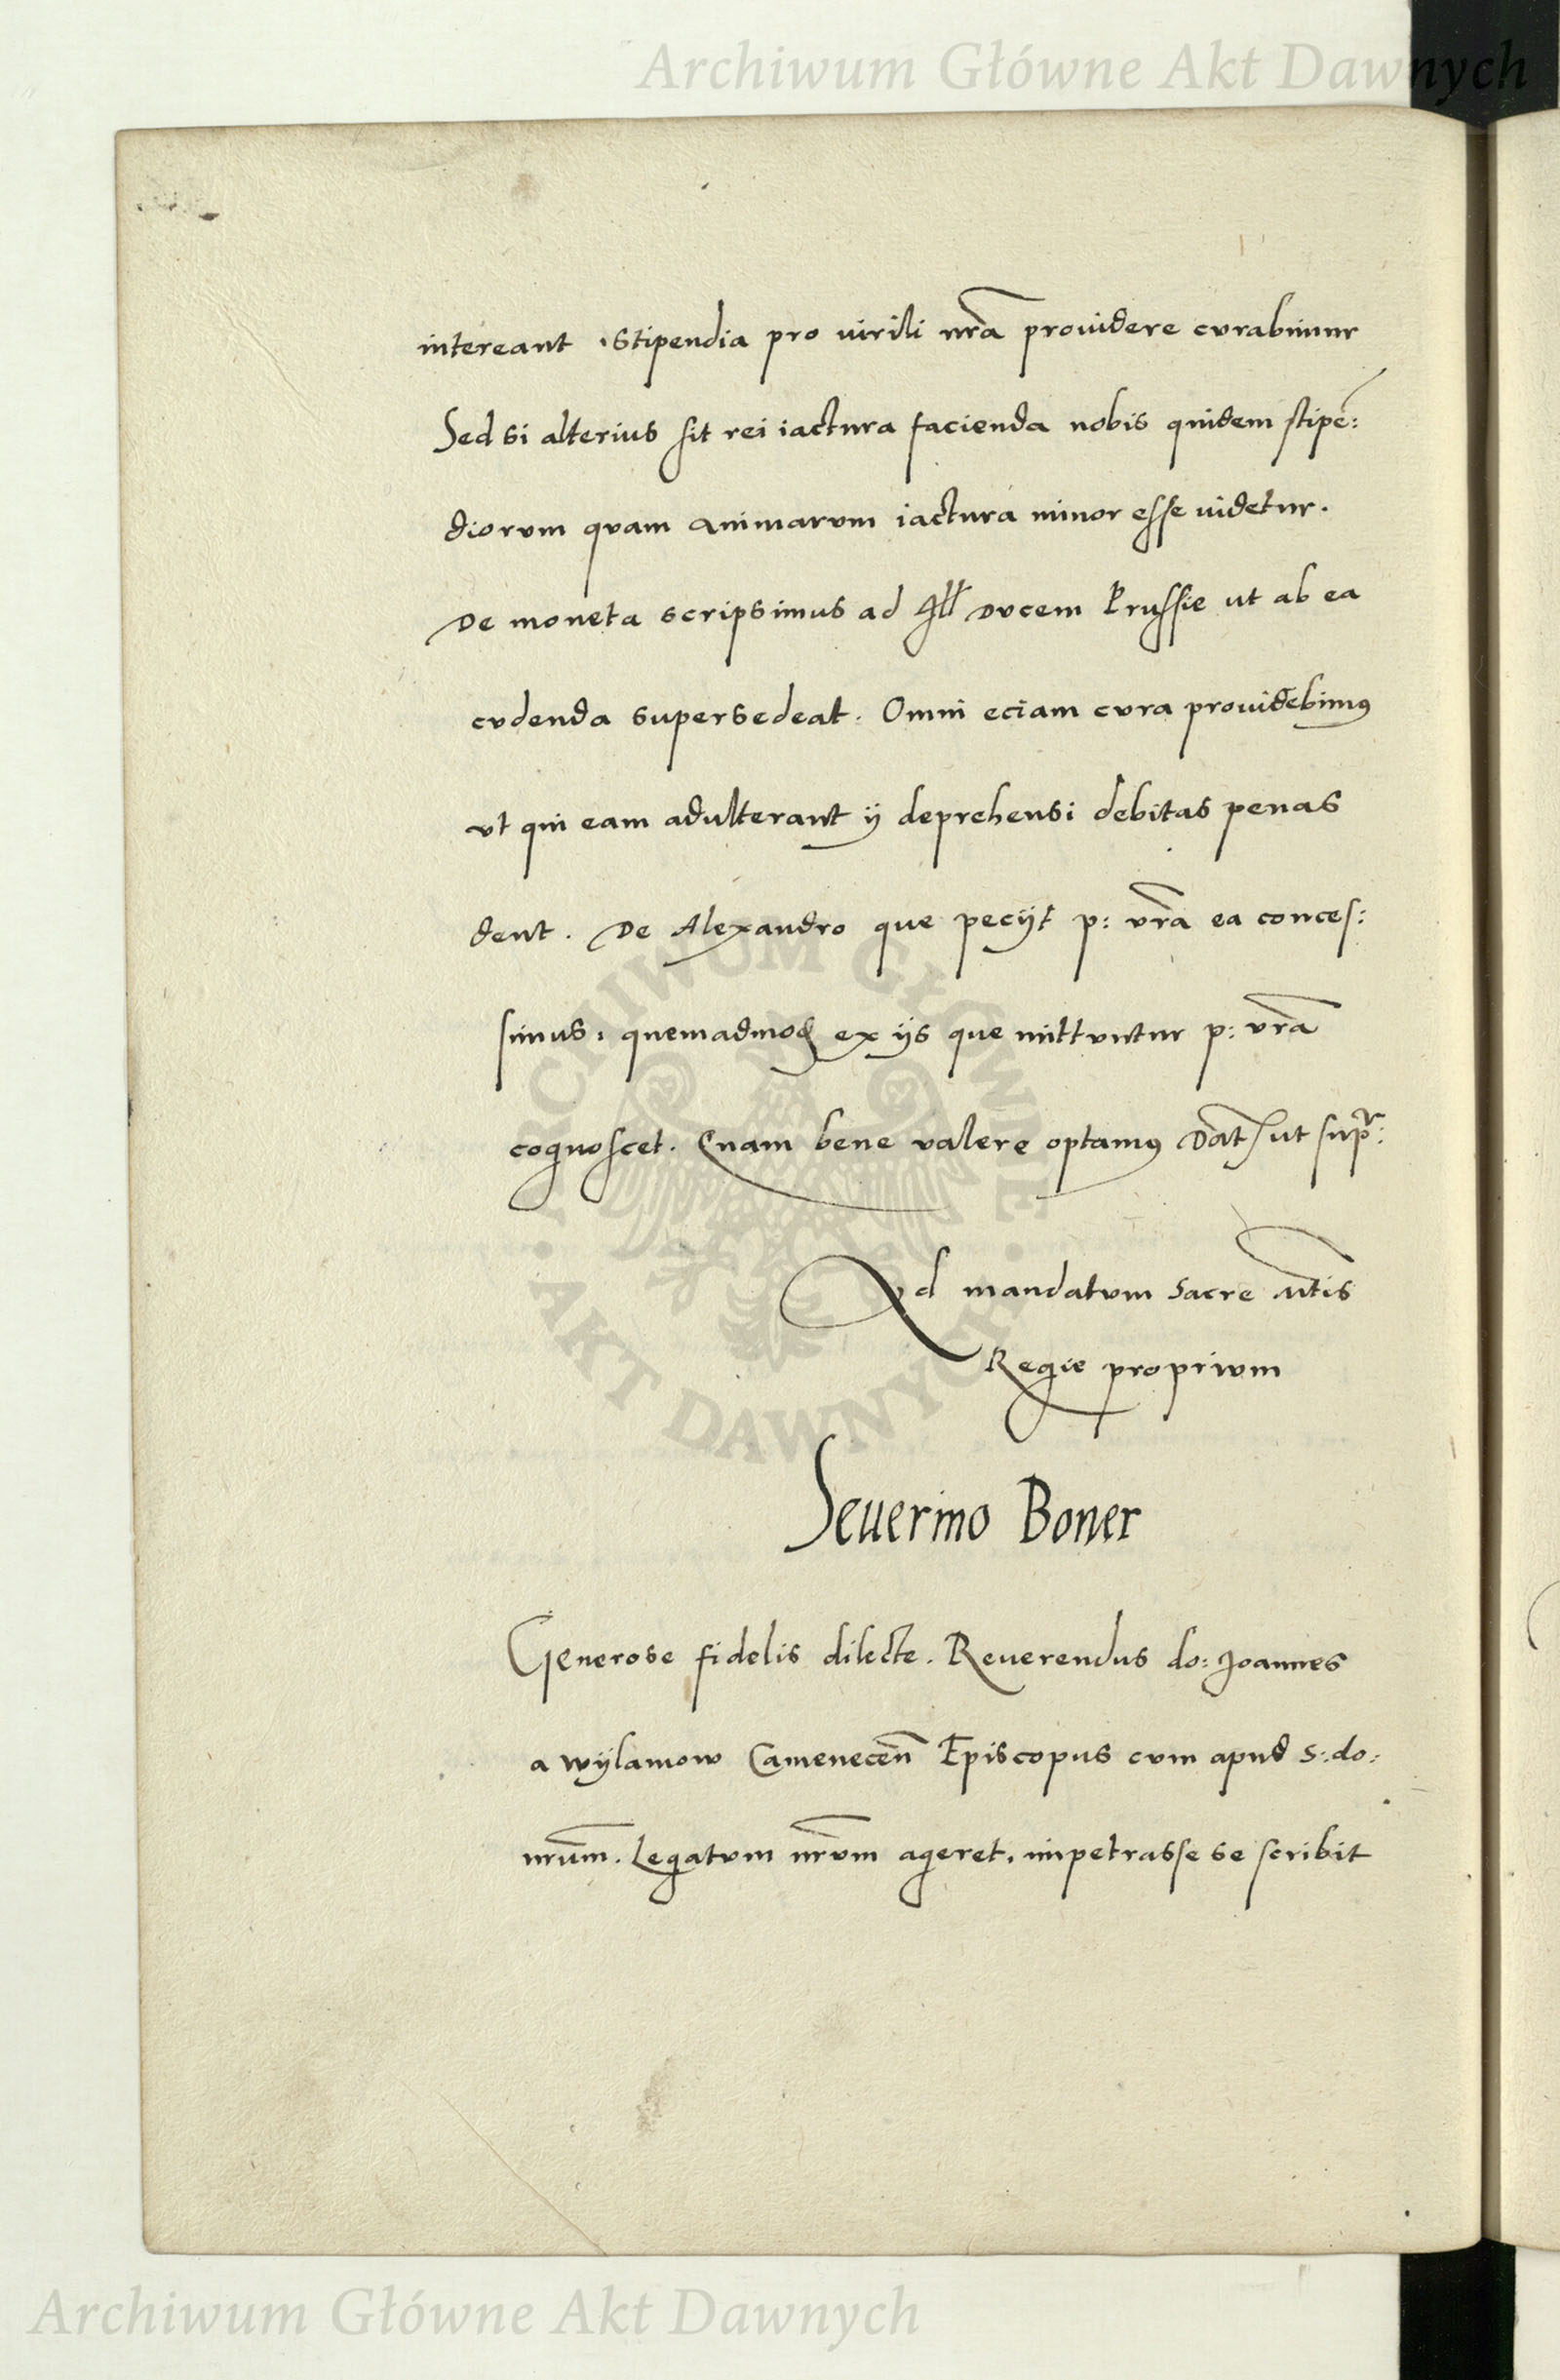 Archiwum Główne Akt Dawnych
intereant, stipendia pro virili nr̃a prouidere curabimur
Sed si alterius sit rei iactura facienda nobis quidem stipẽ:
diorum quam animarum iactura minor esse uidetur.
De moneta scripsimus ad Ill ducem Prussie ut ab ea
cudenda supersedeat. Omni eciam cura prouidebimꝰ
ut qui eam adulterant ij deprehensi debitas penas
dent. De Alexandro que pecijt p: vr̃a ea conces:
simus, quemadmoď ex ijs que mittuntur p: vr̃a
cognoscet. Quam bene valere optamꝰ Dat̃ ut supr:
Ad mandatum Sacre Mtis
Regie proprium
Seuerino Boner
Generose fidelis dilecte. Reuerendus do: Joannes
a wÿlamow Camenecen̄ Episcopus cum apud S: do:
nr̃um. Legatum nr̃um ageret, impetrasse se scribit
ARCHIWUM GŁÓWNE · AKT DAWNYCH ·
Archiwum Główne Akt Dawnych